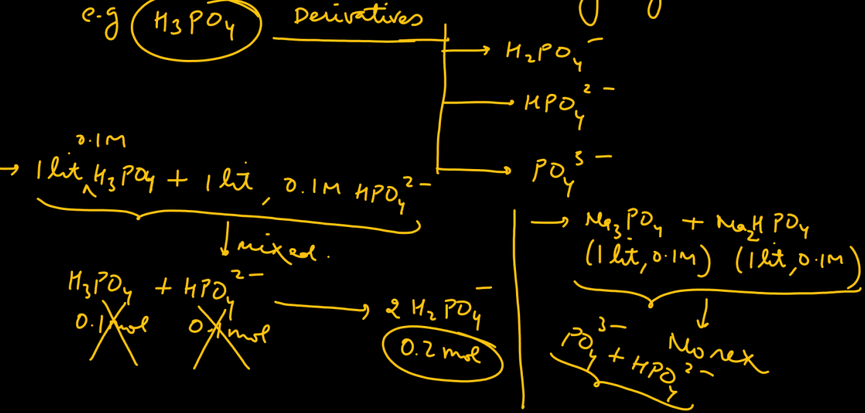 e.g H₃PO₄ Derivatives
→ H₂PO₄⁻
→ HPO₄²⁻
→ PO₄³⁻
0.1M
→ 1 lit ^ H₃PO₄ + 1 lit, 0.1M HPO₄²⁻
↓ mixed.
H₃PO₄ + HPO₄²⁻ → 2 H₂PO₄⁻
0.1 mol 0.1 mol 0.2 mol
→ Na₃PO₄ + Na₂HPO₄
(1 lit, 0.1M) (1 lit, 0.1M)
↓
PO₄³⁻ + HPO₄²⁻ No rex